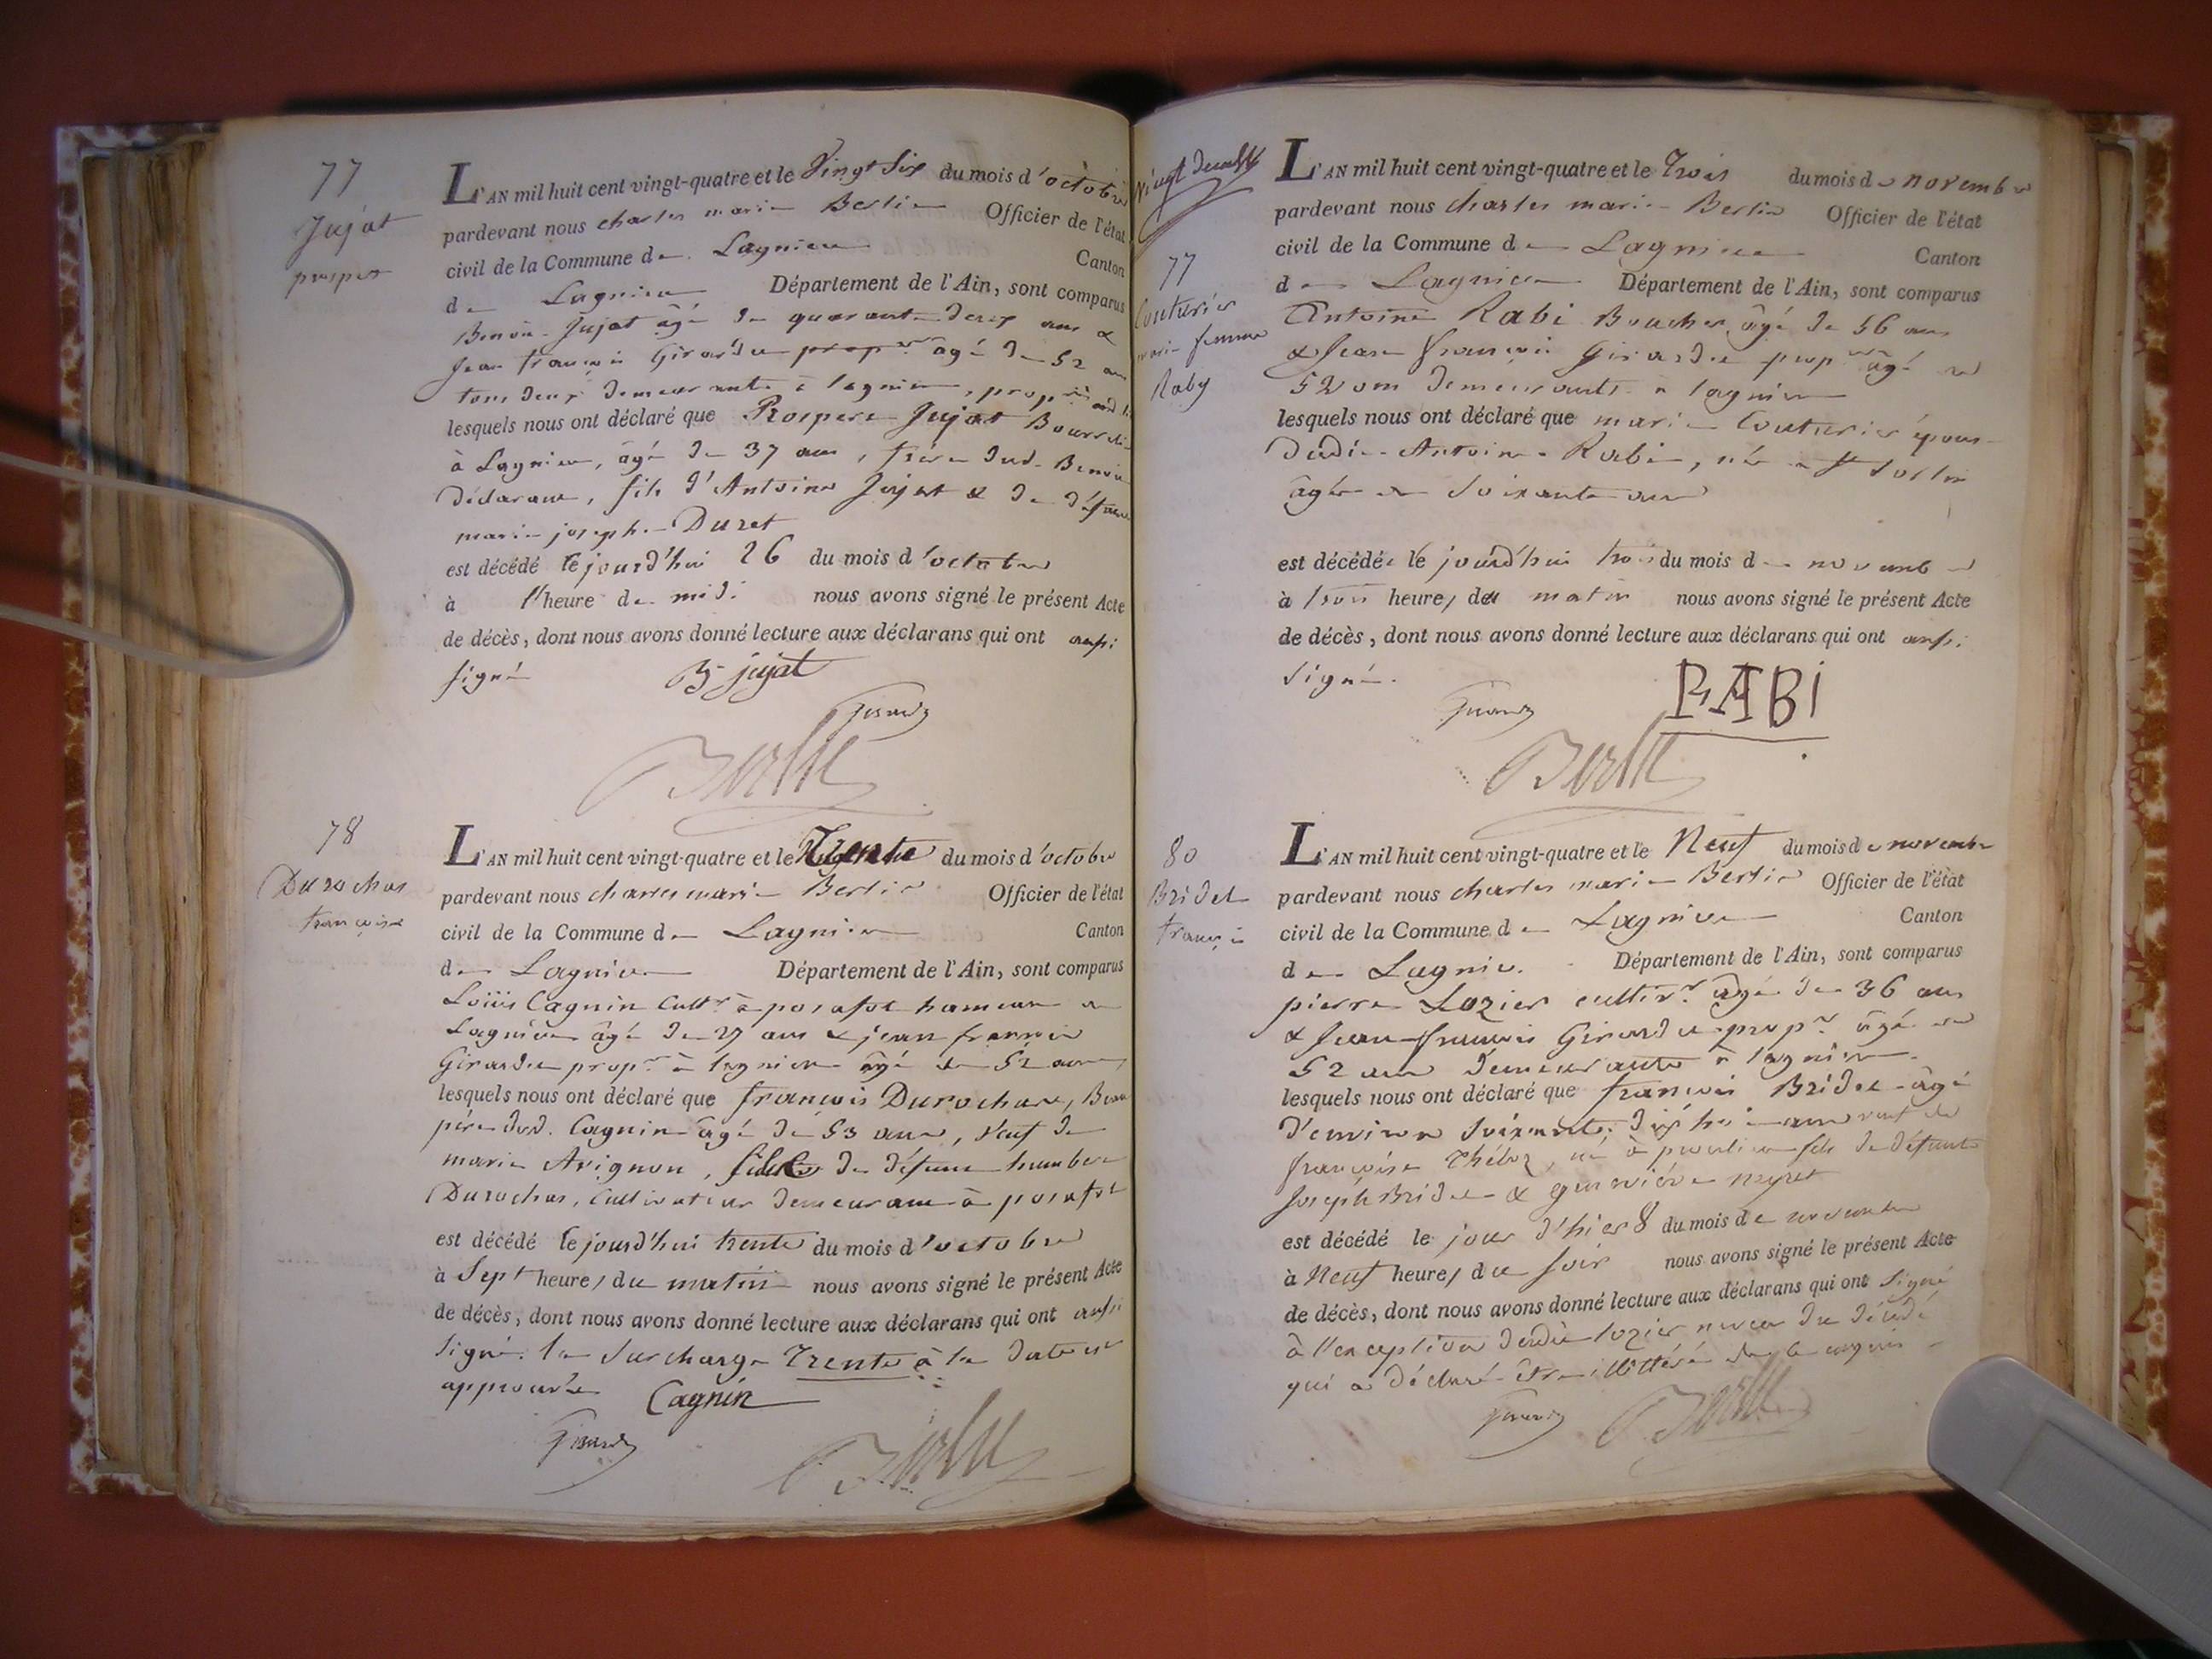 77
Jujat
prosper
L'AN mil huit cent vingt-quatre et le Vingt Six du mois d'octobre
pardevant nous charles marie Berlie Officier de l'état
civil de la Commune de Lagnieu Canton
de Lagnieu Département de l'Ain, sont comparus
Benoit Jujat âgé de quarante deux ans &
Jean françois Girardu prop.re âgé de 52 ans
tous deux demeurants à lagnieu, prop.res
lesquels nous ont déclaré que Prospere Jujat Bourrelier
à Lagnieu, âgé de 37 ans, frère dud. Benoit
déclarant, fils d'Antoine Jujat & de défunte
marie josephe Duret
est décédé le jourd'hui 26 du mois d'octobre
à l'heure de midi nous avons signé le présent Acte
de décès, dont nous avons donné lecture aux déclarans qui ont aussi
signé B jujat
78
Durochas
françois
L'AN mil huit cent vingt-quatre et le Trente du mois d'octobre
pardevant nous charles marie Berlie Officier de l'état
civil de la Commune de Lagnieu Canton
de Lagnieu Département de l'Ain, sont comparus
Loüis Cagnin Cult.r à posafol hameau de
Lagnieu âgé de 27 ans & jean françois
Girardu prop.re à lagnieu âgé de 52 ans,
lesquels nous ont déclaré que françois Durochas, Beau
père dud. Cagnin âgé de 53 ans, Veuf de
marie Avignon, fils de défunt humbert
Durochas, Cultivateur demeurant à posafol
est décédé le jourd'hui trente du mois d'octobre
à Sept heures du matin nous avons signé le présent Acte
de décès, dont nous avons donné lecture aux déclarans qui ont aussi
signé. la surcharge Trente à la date est
approuvée Cagnin
77
Couturier
marie femme
Raby
L'AN mil huit cent vingt-quatre et le Trois du mois de novembre
pardevant nous charles marie Berlie Officier de l'état
civil de la Commune de Lagnieu Canton
de Lagnieu Département de l'Ain, sont comparus
Antoine Rabi Boucher âgé de 56 ans
& Jean françois Girardu prop.re âgé de
52 ans demeurants à lagnieu
lesquels nous ont déclaré que marie Couturier épouse
dudit Antoine Rabi, née à St Sorlin
âgée de soixante ans
est décédée le jourd'hui trois du mois de novembre
à trois heures du matin nous avons signé le présent Acte
de décès, dont nous avons donné lecture aux déclarans qui ont aussi
signé.
RABI
80
Bridet
françois
L'AN mil huit cent vingt-quatre et le Neuf du mois de novembre
pardevant nous charles marie Berlie Officier de l'état
civil de la Commune de Lagnieu Canton
de Lagnieu Département de l'Ain, sont comparus
pierre Lozier cultiv.r âgé de 36 ans
& Jean françois Girardu prop.re âgé de
52 ans demeurants à lagnieu
lesquels nous ont déclaré que françois Bridet âgé
d'environ soixante dix huit ans veuf de
françoise né à fils de défunts
Joseph Bridet & genevieve neyret
est décédé le jour d'hier 8 du mois de novembre
à Neuf heures du soir nous avons signé le présent Acte
de décès, dont nous avons donné lecture aux déclarans qui ont signé
à l'exception dudit lozier neveu du décédé
qui a déclaré être illettéré de ce enquis